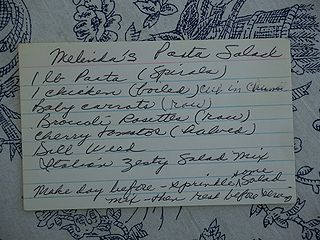 Melinda's Pasta Salad
1 lb Pasta (Spirals)
1 chicken (boiled) Cut in Chunks
Baby carrots (raw)
Brocoli Rosettes (raw)
Cherry Tomatoe (halved)
Dill Weed
Italian Zesty Salad Mix
Make day before - sprinkle some Salad
mix - then rest before serving